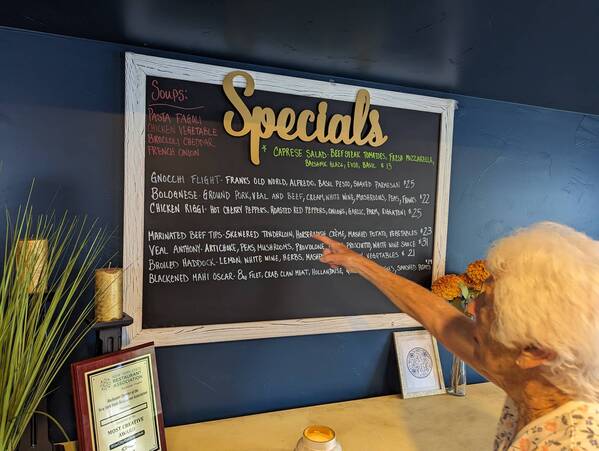 Specials
Soups:
Pasta Fagoli
Chicken Vegetable
Broccoli Cheddar
French Onion
* Caprese Salad- Beefsteak Tomatoes, Fresh Mozzarella,
Balsamic Glaze, EVOO, Basil $13
Gnocchi Flight- Franks Old World, Alfredo, Basil Pesto, Shaved Parmesan $25
Bolognese- Ground Pork, Veal, and Beef, Cream, White Wine, Mushrooms, Peas, $22
Chicken Riggi- Hot Cherry Peppers, Roasted Red Peppers, Onions, Garlic, Parm, Rigatoni $25
Marinated Beef Tips- Skewered Tenderloin, Horseradish Crème, Mashed Potato, Vegetables $23
Veal Anthony- Artichoke, Peas, Mushrooms, Provolone, Prosciutto, White Wine Sauce $31
Broiled Haddock- Lemon, White Wine, Herbs, Vegetables $21
Blackened Mahi Oscar- 8oz Filet, Crab Claw Meat, Hollandaise, Smashed
RESTAURANT ASSOCIATION
MOST CREATIVE
AWARD